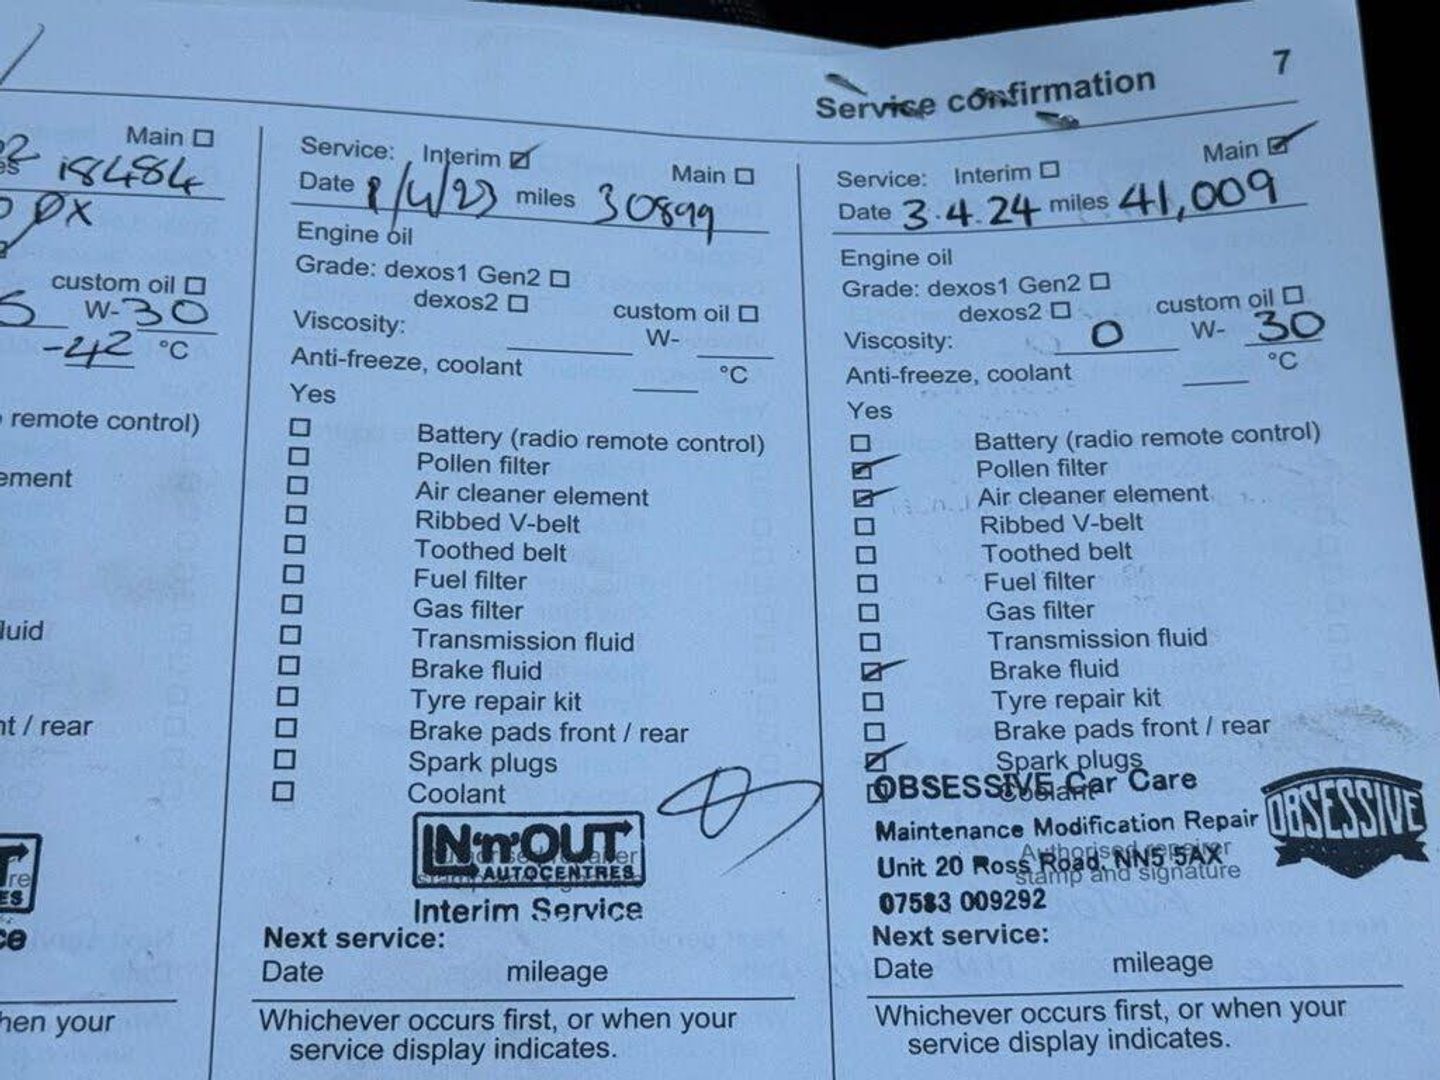 7
Service confirmation
Main
18484
custom oil
W-30
-42 °C
remote control)
ement
luid
nt / rear
hen your
Service: Interim Main
Date 8/4/23 miles 30899
Engine oil
Grade: dexos1 Gen2
dexos2 custom oil
Viscosity: W-
Anti-freeze, coolant °C
Yes
Battery (radio remote control)
Pollen filter
Air cleaner element
Ribbed V-belt
Toothed belt
Fuel filter
Gas filter
Transmission fluid
Brake fluid
Tyre repair kit
Brake pads front / rear
Spark plugs
Coolant
IN'n'OUT
AUTOCENTRES
Interim Service
Next service:
Date mileage
Whichever occurs first, or when your
service display indicates.
Service: Interim Main
Date 3.4.24 miles 41,009
Engine oil
Grade: dexos1 Gen2
dexos2 custom oil
Viscosity: 0 W- 30
Anti-freeze, coolant °C
Yes
Battery (radio remote control)
Pollen filter
Air cleaner element
Ribbed V-belt
Toothed belt
Fuel filter
Gas filter
Transmission fluid
Brake fluid
Tyre repair kit
Brake pads front / rear
Spark plugs
Coolant
OBSESSIVE Car Care
Maintenance Modification Repair
Authorised repairer
Unit 20 Ross Road, NN5 5AX
stamp and signature
07583 009292
OBSESSIVE
Next service:
Date mileage
Whichever occurs first, or when your
service display indicates.